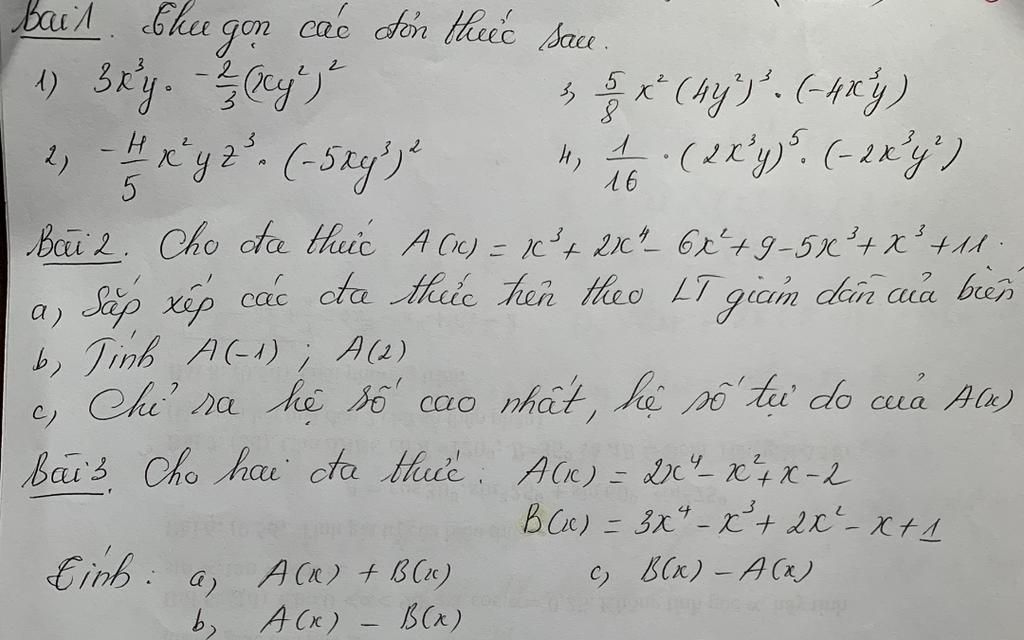 Bài 1. Thu gọn các đơn thức sau.
1) 3x³y · -2/3(xy²)²
3, 5/8 x²(4y²)³ · (-4x³y)
2, -4/5 x²yz³ · (-5xy³)²
4, 1/16 · (2x³y)⁵ · (-2x³y²)
Bài 2. Cho đa thức A(x) = x³ + 2x⁴ - 6x² + 9 - 5x³ + x³ + 11.
a, Sắp xếp các đa thức trên theo LT giảm dần của biến
b, Tính A(-1) ; A(2)
c, Chỉ ra hệ số cao nhất, hệ số tự do của A(x)
Bài 3. Cho hai đa thức: A(x) = 2x⁴ - x² + x - 2
B(x) = 3x⁴ - x³ + 2x² - x + 1
Tính: a, A(x) + B(x)
c, B(x) - A(x)
b, A(x) - B(x)